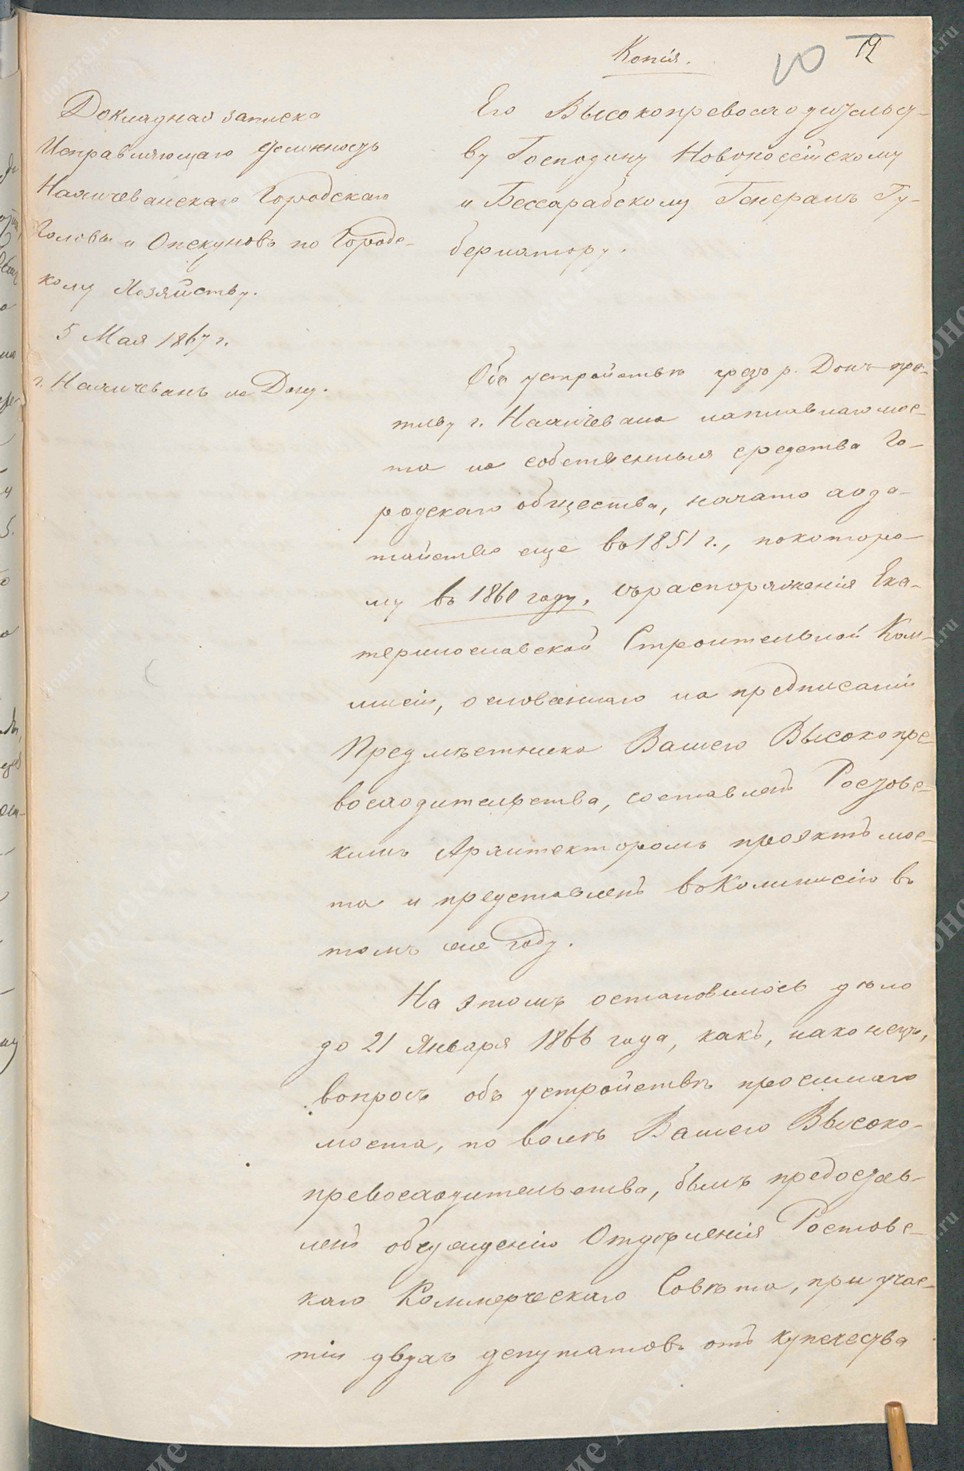 Копія.
19
Докладная записка
Исправляющаго должность
Нахичеванскаго Городскаго
Головы и Опекуновъ по Городс-
кому Хозяйству.
5 Мая 1867 г.
г. Нахичевань на Дону.
Его Высокопревосходительст-
ву Господину Новороссійскому
и Бессарабскому Генералъ Гу-
бернатору.
Объ устройствѣ чрезъ р. Донъ про-
тиву г. Нахичевана наплавнаго мос-
та на собственныя средства Го-
родскаго общества, начато хода-
тайство еще въ 1851 г., по которо-
му въ 1860 году, съ распоряженія Ека-
теринославской Строительной Ком-
мисіи, основаннаго на предписаніи
Предмѣстника Вашего Высокопре-
восходительства, составленъ Ростовс-
кимъ Архитекторомъ проэктъ мос-
та и представленъ въ Коммисію въ
томъ же году.
На этомъ остановилось дѣло
до 21 Января 1866 года, какъ, наконецъ,
вопросъ объ устройствѣ просимаго
моста, по волѣ Вашего Высоко-
превосходительства, былъ предостав-
ленъ обсужденію Отдѣленія Ростовс-
каго Коммерческаго Совѣта, при учас-
тіи двухъ депутатовъ отъ купечества